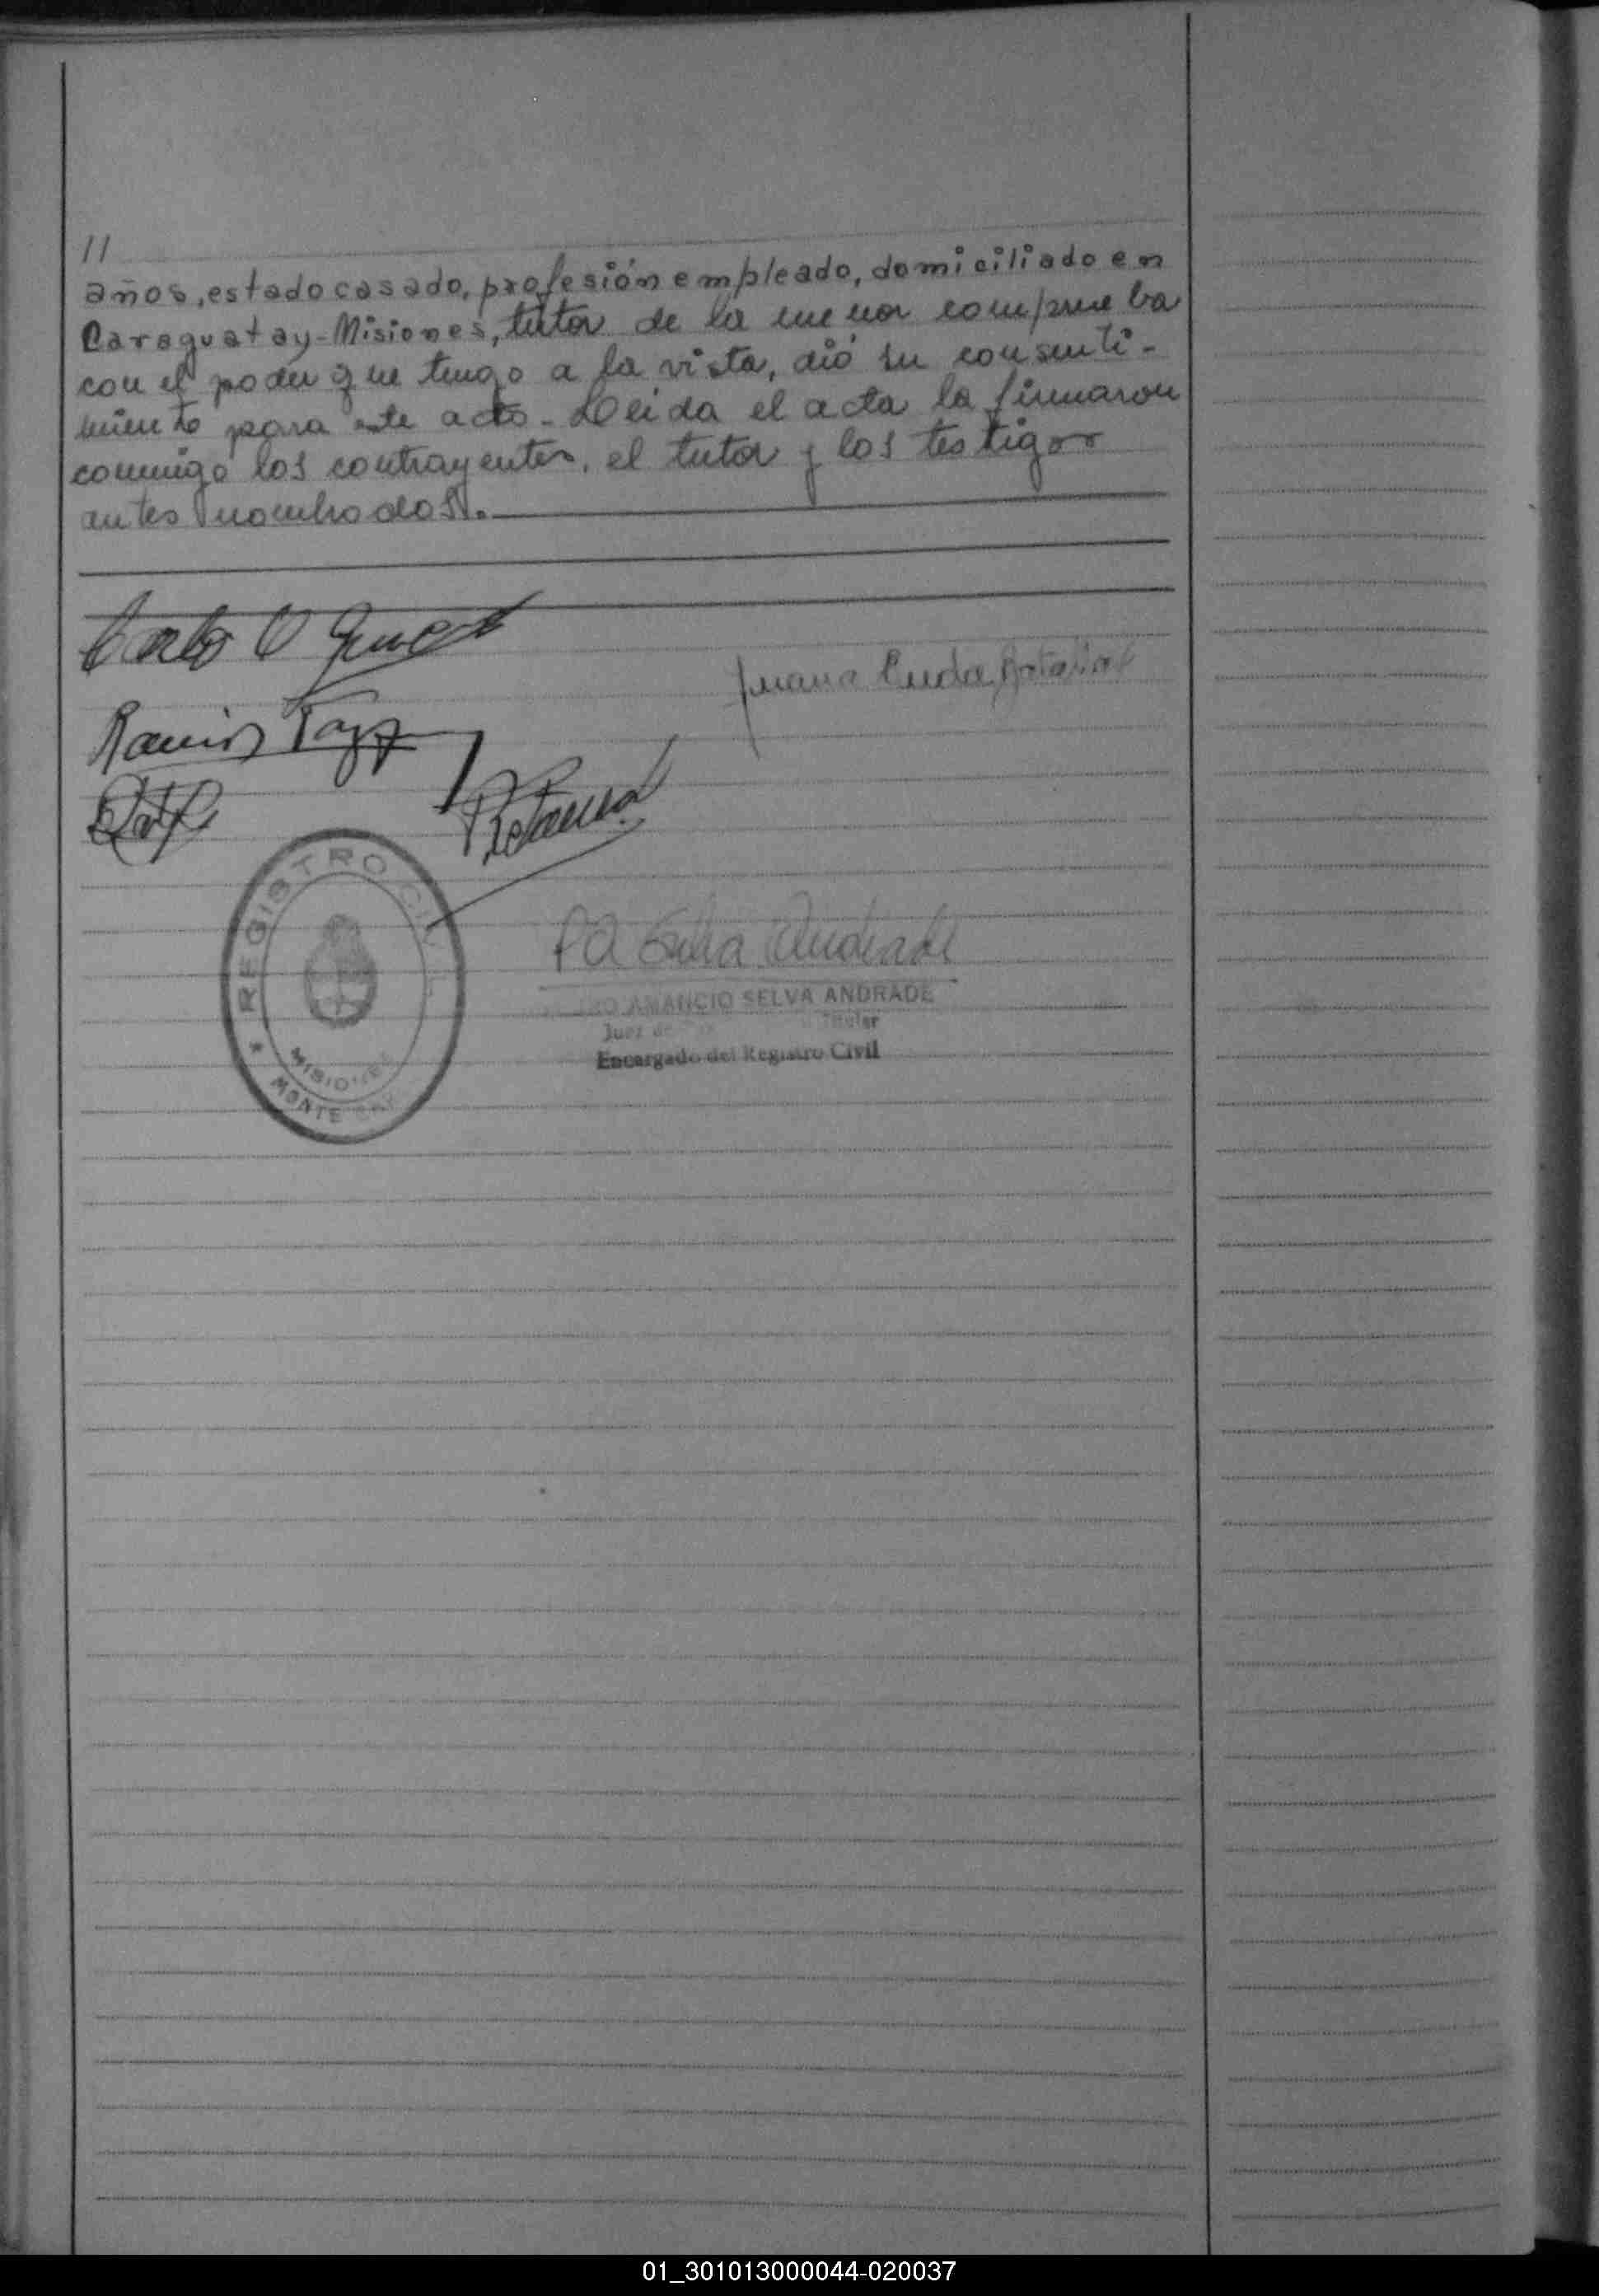 //
años, estado casado, profesión empleado, domiciliado en
Caraguatay-Misiones, tutor de la menor comprueba
con el poder que tengo a la vista, dió su consenti-
miento para este acto - Leída el acta la firmaron
conmigo los contrayentes, el tutor y los testigos
antes nombrados.
Juana
Ramón
REGISTRO CIVIL
MISIONES
MONTE
Selva Andrade
AMANCIO SELVA ANDRADE
Juez de
Titular
Encargado del Registro Civil
01_301013000044-020037